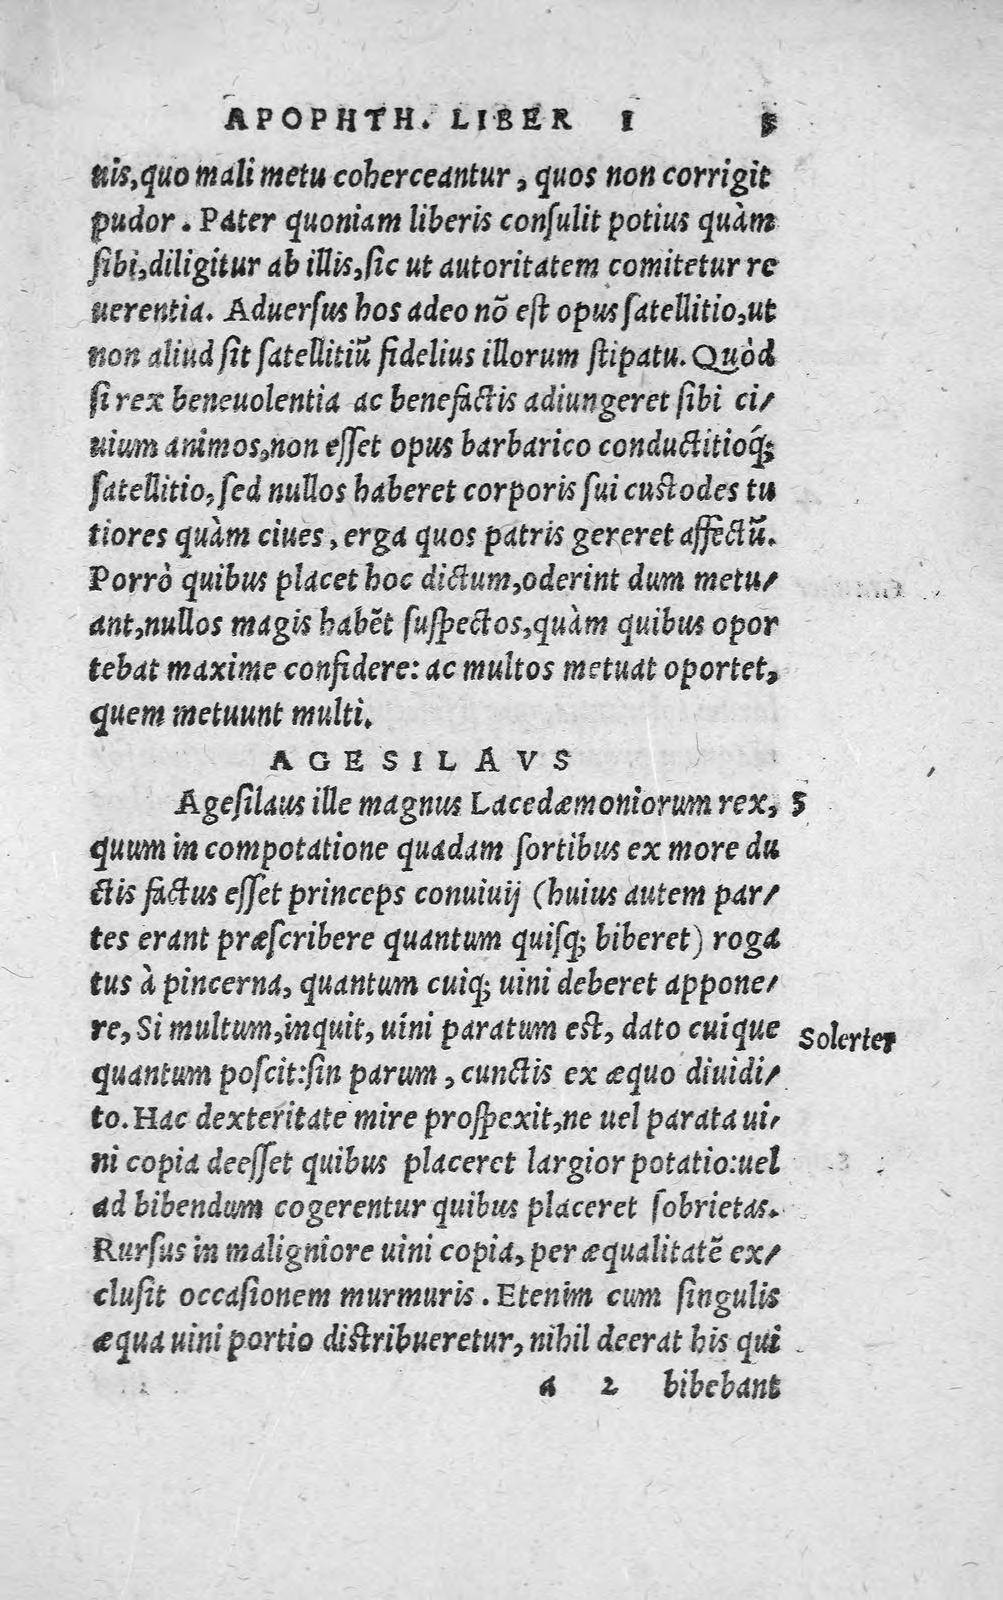 APOPHTH. LIBER I 5
uis,quo mali metu coherceantur, quos non corrigit
pudor. Pater quoniam liberis conſulit potius quàm
ſibi,diligitur ab illis,ſic ut autoritatem comitetur re
uerentia. Aduerſus hos adeo nõ eſt opus ſatellitio,ut
non aliud ſit ſatellitiũ fidelius illorum ſtipatu. Quòd
ſi rex beneuolentia ac benefactis adiungeret ſibi ci/
uium animos,non eſſet opus barbarico conductitioq́;
ſatellitio, ſed nullos haberet corporis ſui cuſtodes tu
tiores quàm ciues, erga quos patris gereret affectũ.
Porrò quibus placet hoc dictum,oderint dum metu/
ant,nullos magis habẽt ſuſpectos,quàm quibus opor
tebat maxime confidere: ac multos metuat oportet,
quem metuunt multi.
AGESILAVS
Ageſilaus ille magnus Lacedæmoniorum rex, 5
quum in compotatione quadam ſortibus ex more du
ctis factus eſſet princeps conuiuij (huius autem par/
tes erant præſcribere quantum quiſq; biberet) roga
tus à pincerna, quantum cuiq; uini deberet appone/
re, Si multum,inquit, uini paratum eſt, dato cuique
Solerter
quantum poſcit:ſin parum, cunctis ex æquo diuidi/
to. Hac dexteritate mire proſpexit,ne uel parata ui/
ni copia deeſſet quibus placeret largior potatio:uel
ad bibendum cogerentur quibus placeret ſobrietas.
Rurſus in maligniore uini copia, per æqualitatẽ ex/
cluſit occaſionem murmuris. Etenim cum ſingulis
æqua uini portio diſtribueretur, nihil deerat his qui
a 2 bibebant